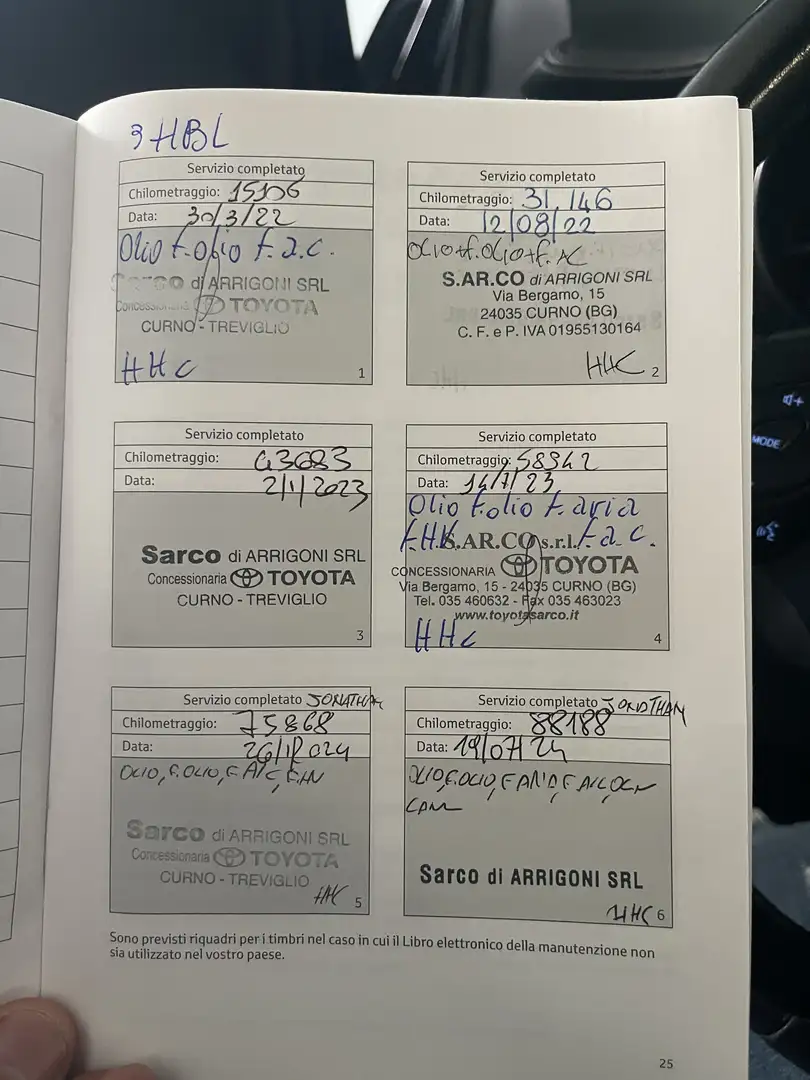 3 HBL
Servizio completato
Chilometraggio: 15106
Data: 30/3/22
Olio f.olio f.a.c.
Sarco di ARRIGONI SRL
Concessionaria TOYOTA
CURNO - TREVIGLIO
HHC
1
Servizio completato
Chilometraggio: 31.146
Data: 12/08/22
OLIO+f.OLIO+f.AC
S.AR.CO di ARRIGONI SRL
Via Bergamo, 15
24035 CURNO (BG)
C. F. e P. IVA 01955130164
HHC
2
Servizio completato
Chilometraggio: 43683
Data: 2/1/2023
Sarco di ARRIGONI SRL
Concessionaria TOYOTA
CURNO - TREVIGLIO
3
Servizio completato
Chilometraggio: 58942
Data: 14/7/23
Olio f.olio f.aria
S.AR.CO s.r.l. f.a.c.
CONCESSIONARIA TOYOTA
Via Bergamo, 15 - 24035 CURNO (BG)
Tel. 035 460632 - Fax 035 463023
www.toyotasarco.it
HHC
4
Servizio completato JONATHAN
Chilometraggio: 75868
Data:
OLIO, F.OLIO, F.A/C,
Sarco di ARRIGONI SRL
Concessionaria TOYOTA
CURNO - TREVIGLIO
HHC
5
Servizio completato JONATHAN
Chilometraggio: 88188
Data: 19/07/24
OLIO, F.OLIO, F.ARIA, F.A/C,
Sarco di ARRIGONI SRL
HHC
6
Sono previsti riquadri per i timbri nel caso in cui il Libro elettronico della manutenzione non
sia utilizzato nel vostro paese.
25
MODE